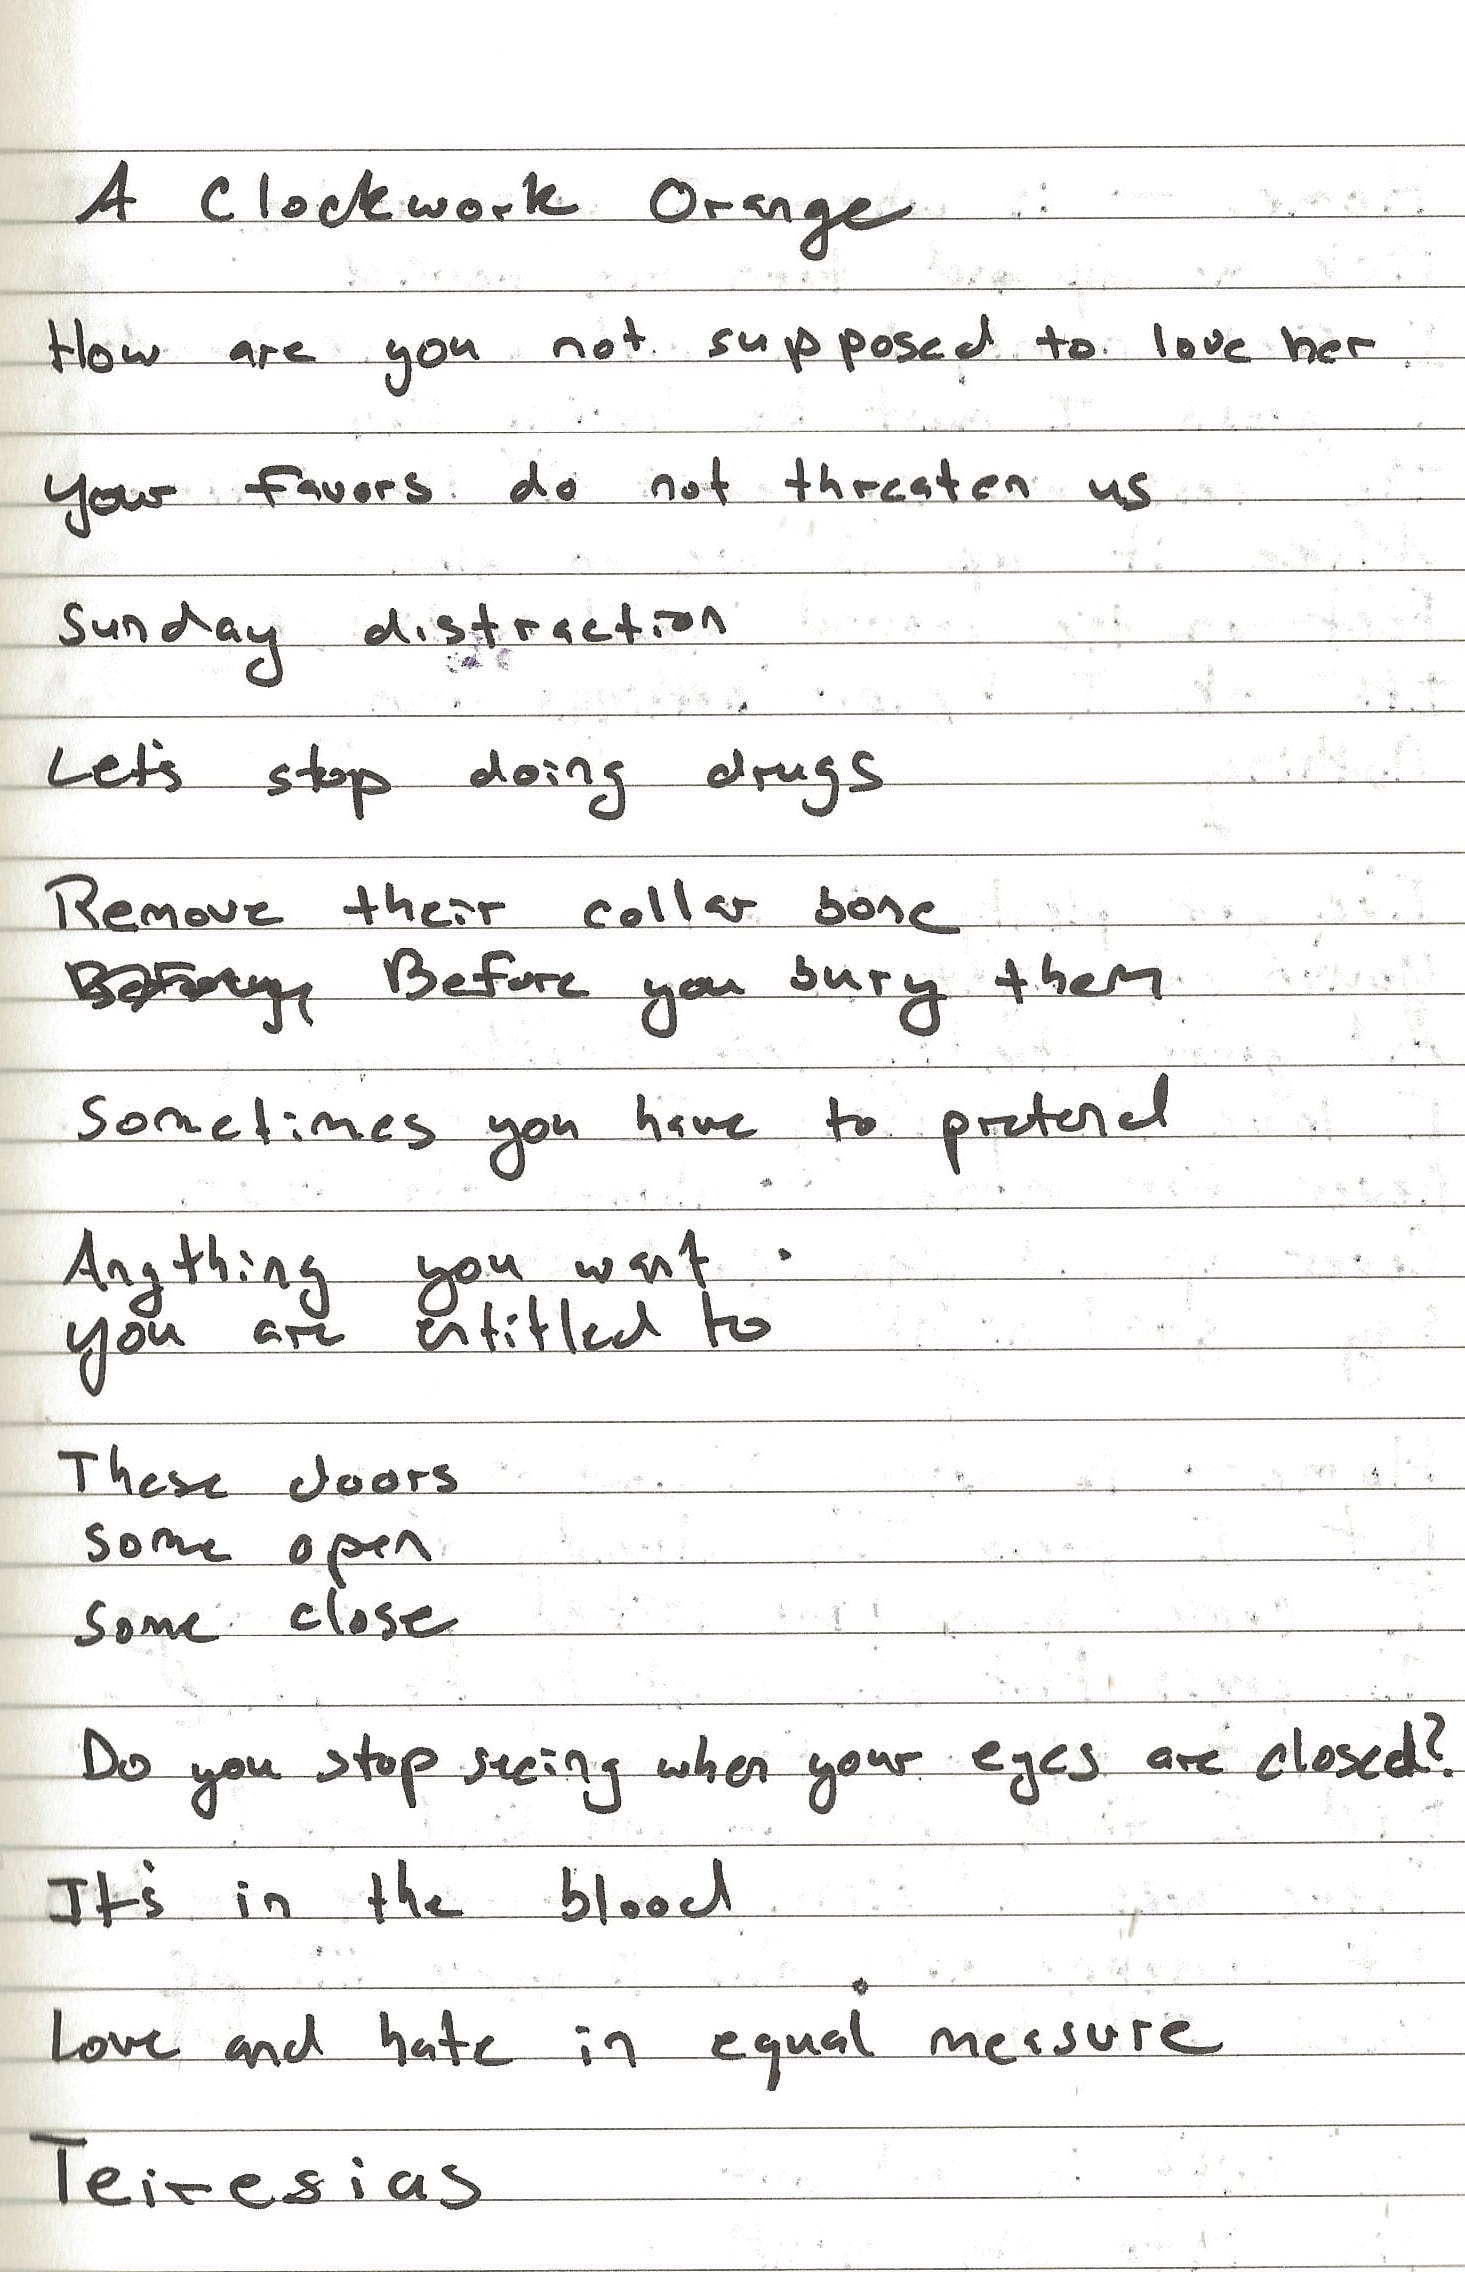 A Clockwork Orange
How are you not supposed to love her
your favors do not threaten us
Sunday distraction
Let's stop doing drugs
Remove their collar bone
Before you bury them
Sometimes you have to pretend
Anything you want
you are entitled to
These doors
some open
some close
Do you stop seeing when your eyes are closed?
It's in the blood
Love and hate in equal measure
Teiresias